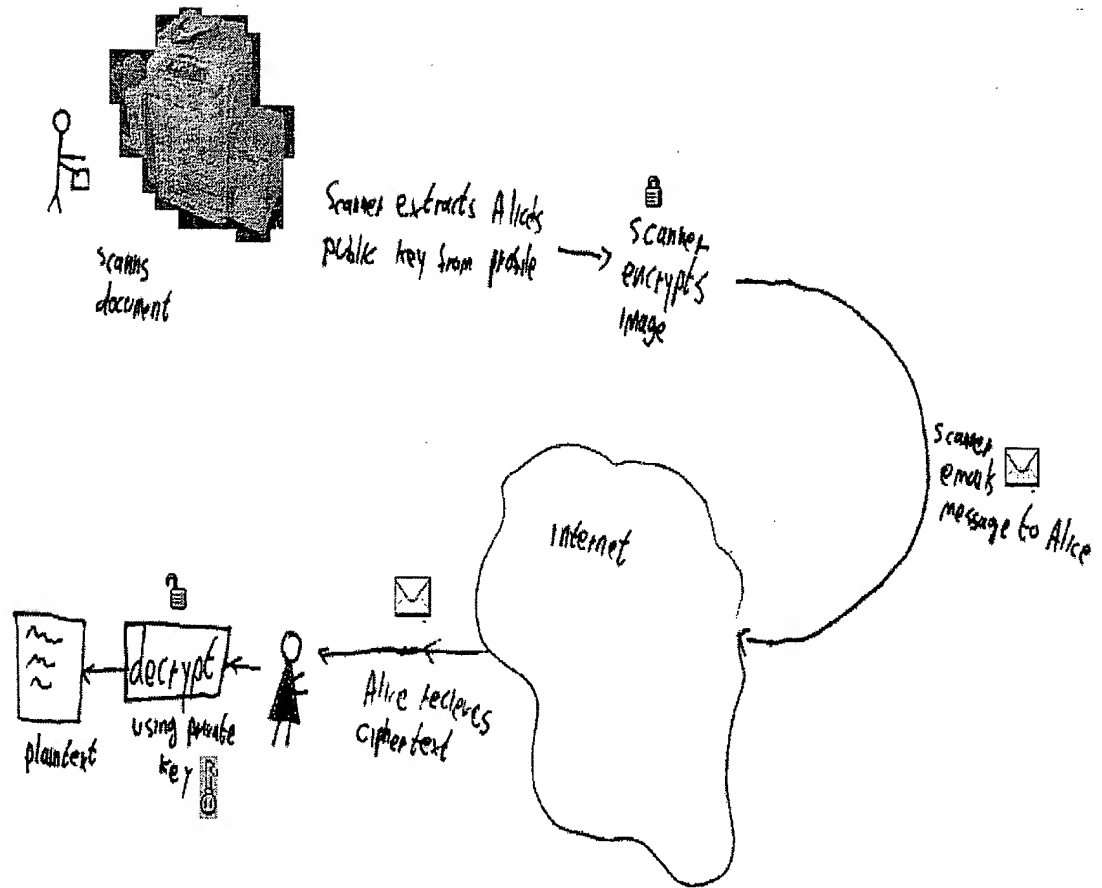 scanns
document
Scanner extracts Alice's
public key from profile
scanner
encrypts
image
scanner
emails
message to Alice
Internet
Alice recieves
ciphertext
decrypt
using private
key
plaintext